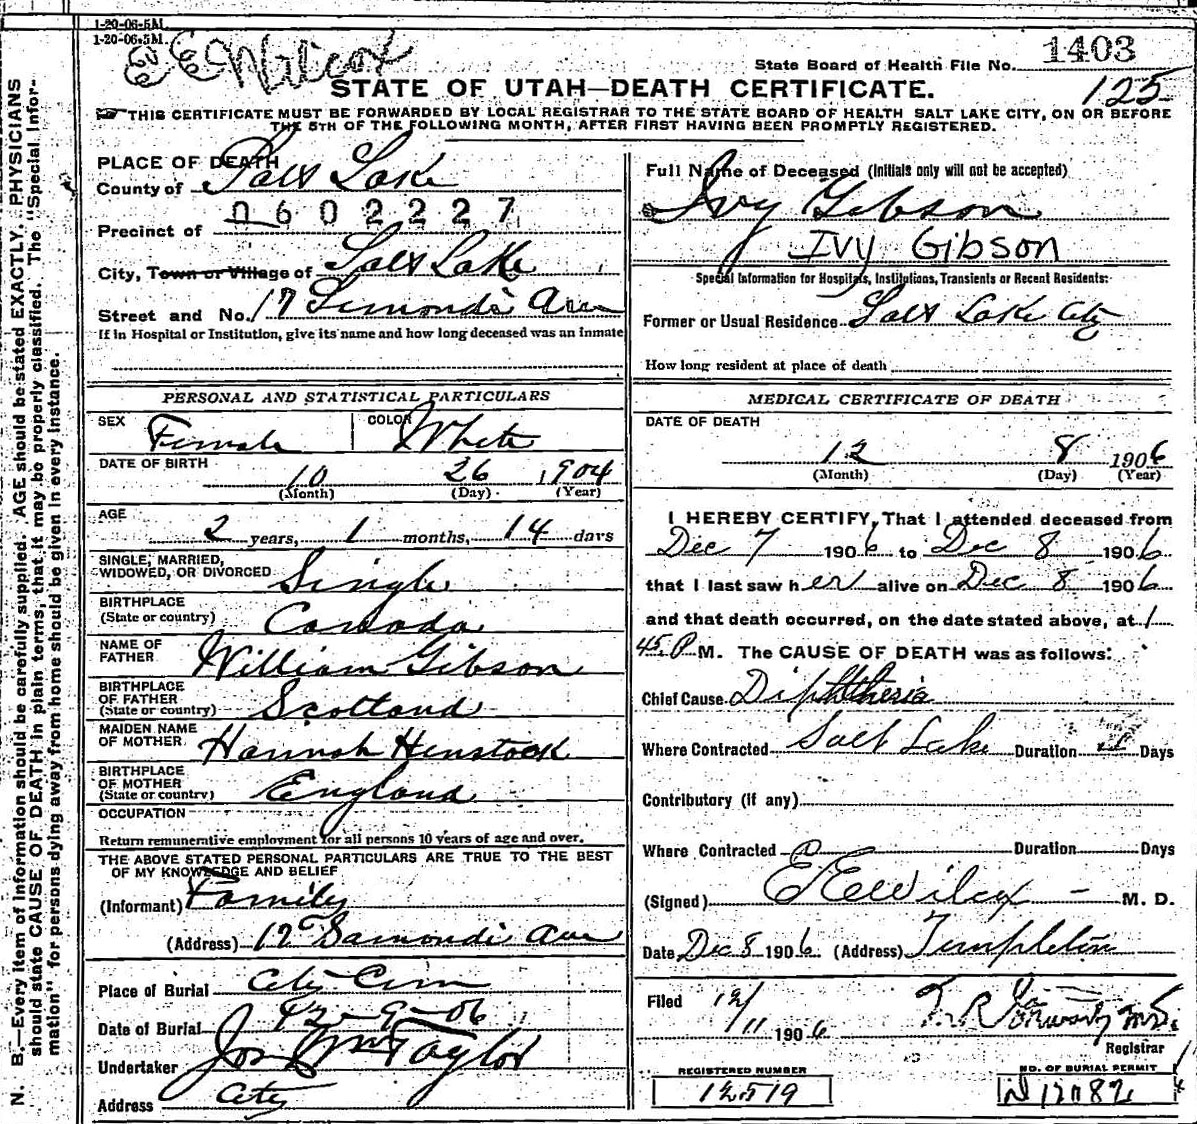 1-20-06-5M.
1-20-06-5M.
E E Wilcox
State Board of Health File No. 1403
125
STATE OF UTAH—DEATH CERTIFICATE.
THIS CERTIFICATE MUST BE FORWARDED BY LOCAL REGISTRAR TO THE STATE BOARD OF HEALTH SALT LAKE CITY, ON OR BEFORE
THE 5TH OF THE FOLLOWING MONTH, AFTER FIRST HAVING BEEN PROMPTLY REGISTERED.
N. B.—Every item of information should be carefully supplied. AGE should be stated EXACTLY. PHYSICIANS
should state CAUSE OF DEATH in plain terms, that it may be properly classified. The "Special Infor-
mation" for persons dying away from home should be given in every instance.
PLACE OF DEATH
County of Salt Lake
0602227
Precinct of
City, Town or Village of Salt Lake
Street and No. 17 Simondi Ave
If in Hospital or Institution, give its name and how long deceased was an inmate
PERSONAL AND STATISTICAL PARTICULARS
SEX Female COLOR White
DATE OF BIRTH 10 26 1904
(Month) (Day) (Year)
AGE 2 years, 1 months, 14 days
SINGLE, MARRIED,
WIDOWED, OR DIVORCED Single
BIRTHPLACE
(State or country) Canada
NAME OF
FATHER William Gibson
BIRTHPLACE
OF FATHER
(State or country) Scotland
MAIDEN NAME
OF MOTHER Hannah Henstock
BIRTHPLACE
OF MOTHER
(State or country) England
OCCUPATION
Return remunerative employment for all persons 10 years of age and over.
THE ABOVE STATED PERSONAL PARTICULARS ARE TRUE TO THE BEST
OF MY KNOWLEDGE AND BELIEF
(Informant) Family
(Address) 17 Samondi Ave
Place of Burial City Cem
Date of Burial 12-9-06
Undertaker Jos Wm Taylor
Address City
Full Name of Deceased (Initials only will not be accepted)
Ivy Gibson
IVY GIBSON
Special Information for Hospitals, Institutions, Transients or Recent Residents:
Former or Usual Residence Salt Lake City
How long resident at place of death
MEDICAL CERTIFICATE OF DEATH
DATE OF DEATH
12 8 1906
(Month) (Day) (Year)
I HEREBY CERTIFY, That I attended deceased from
Dec 7 1906 to Dec 8 1906
that I last saw her alive on Dec 8 1906
and that death occurred, on the date stated above, at 1
45 P M. The CAUSE OF DEATH was as follows:
Chief Cause Diphtheria
Where Contracted Salt Lake Duration Days
Contributory (If any)
Where Contracted Duration Days
(Signed) E E Wilcox — M. D.
Date Dec 8 1906 (Address) Templeton
Filed 12/11 1906
Registrar
REGISTERED NUMBER
12519
NO. OF BURIAL PERMIT
N 12082